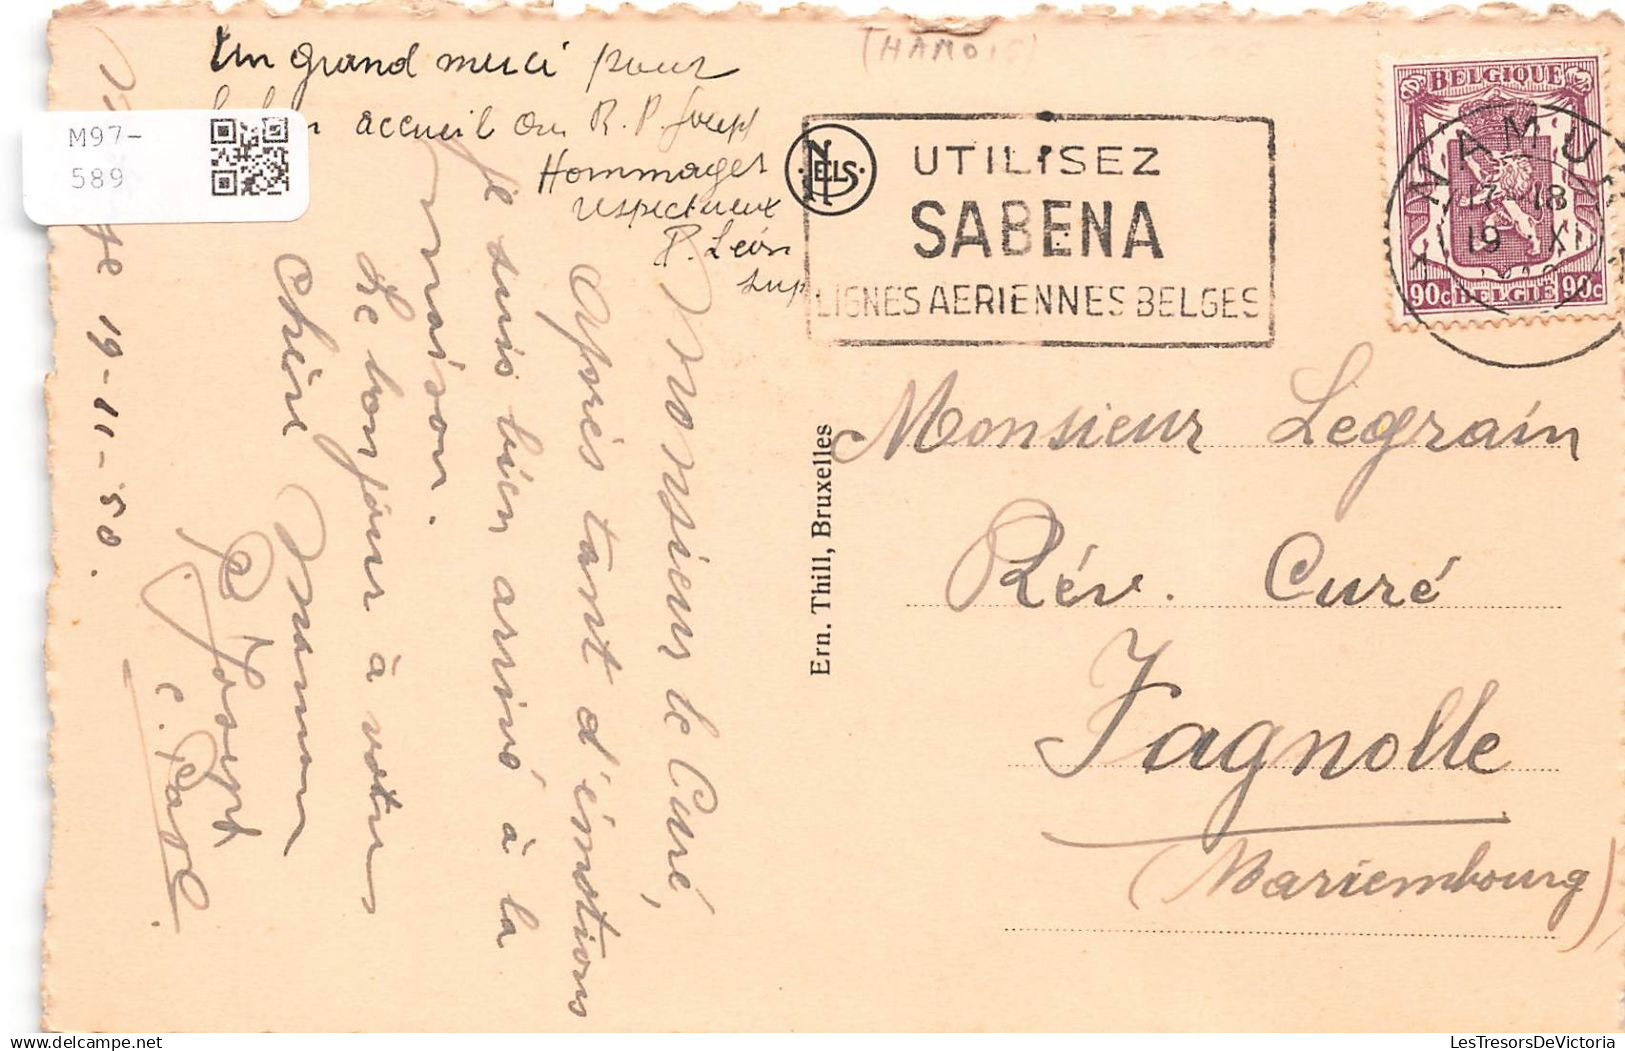 Un grand merci pour
accueil au R. P. Joseph
Hommages
respectueux
P. Léon
sup
(HAMOIS)
M97-
589
NELS
UTILISEZ
SABENA
LIGNES AERIENNES BELGES
BELGIQUE
90c BELGIE 90c
NAMUR
17-18
19 XI
Ern. Thill, Bruxelles
Monsieur Legrain
Rév. Curé
Fagnolle
(Mariembourg)
19-11-50.
Monsieur le Curé,
Après tant d'émotions
je suis bien arrivé à la
maison.
Le bonjour à votre
chère maman
P Joseph
c. Pass.
LesTresorsDeVictoria
delcampe.net